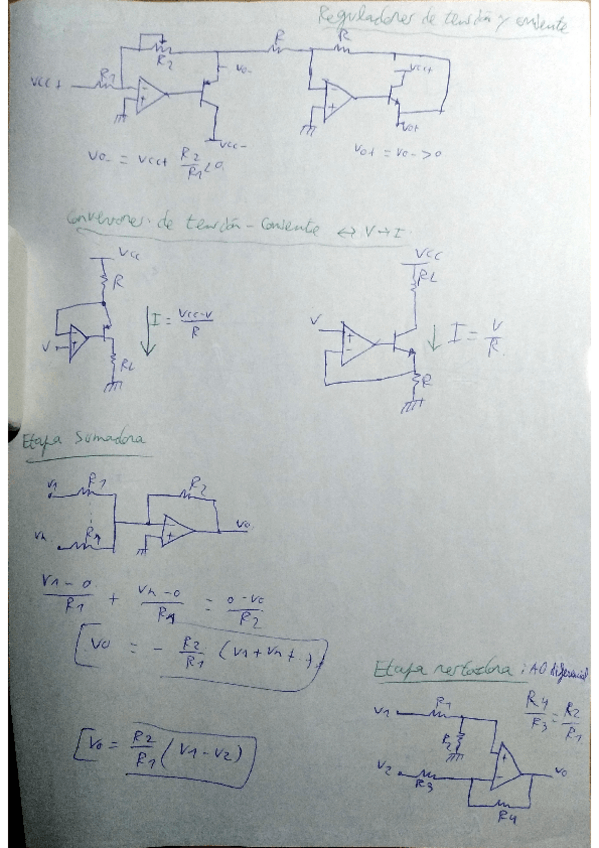 Reguladores de tensión y corriente
R2
R
R
Vcc+
R1
Vo-
Vcc+
-
+
-
+
Vcc-
Vo+
Vo- = Vcc+ R2/R1 < 0
Vo+ = Vo- > 0
Conversores de tensión - corriente ↔ V→I
Vcc
R
I = Vcc-V/R
V
RL
Vcc
RL
V
+
-
I = V/R
R
Etapa sumadora
V1
R1
R2
Vn
R1
-
+
Vo
V1-0/R1 + Vn-0/R1 = 0-Vo/R2
[Vo = - R2/R1 (V1+Vn+..)
Etapa restadora: AO diferencial
R4/R3 = R2/R1
V1
R1
R2
+
-
Vo
V2
R3
R4
[Vo = R2/R1 (V1-V2)